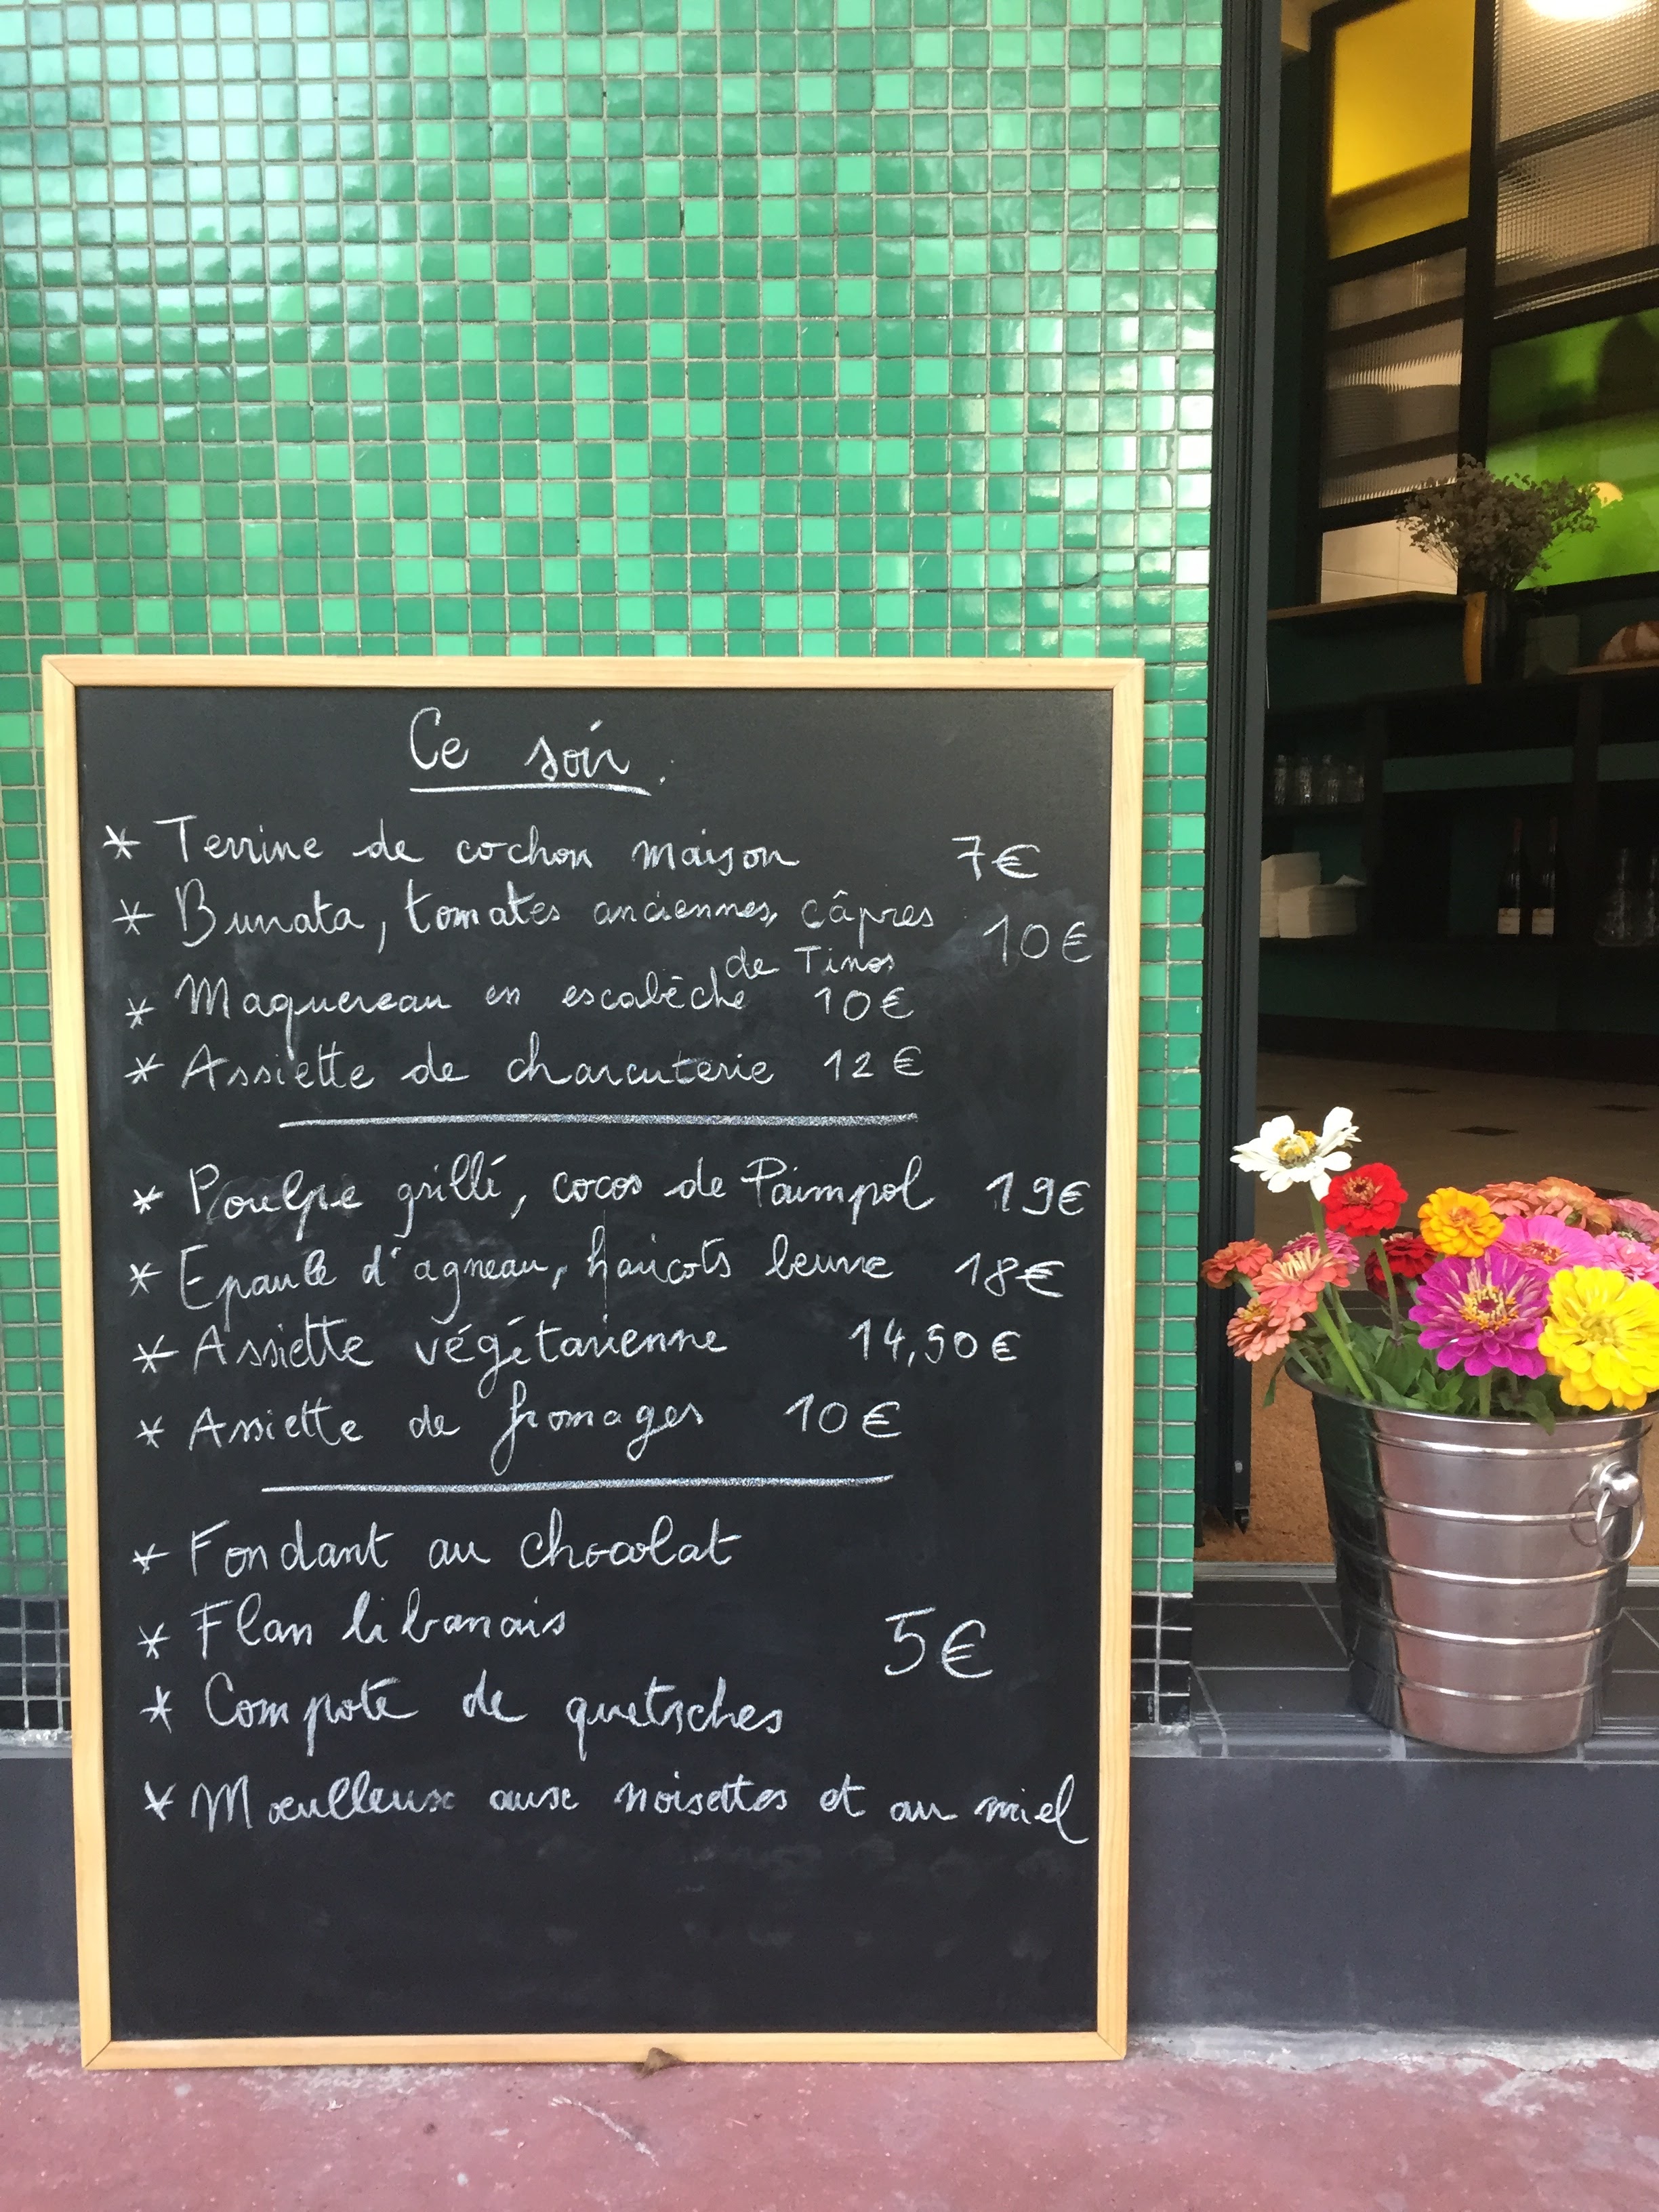 Ce soir
* Terrine de cochon maison 7€
* Burrata, tomates anciennes, câpres 10€
de Tinos
* Maquereau en escabèche 10€
* Assiette de charcuterie 12€
* Poulpe grillé, cocos de Paimpol 19€
* Epaule d'agneau, haricots beurre 18€
* Assiette végétarienne 14,50€
* Assiette de fromages 10€
* Fondant au chocolat
* Flan libanais
5€
* Compote de quetsches
* Moelleux aux noisettes et au miel